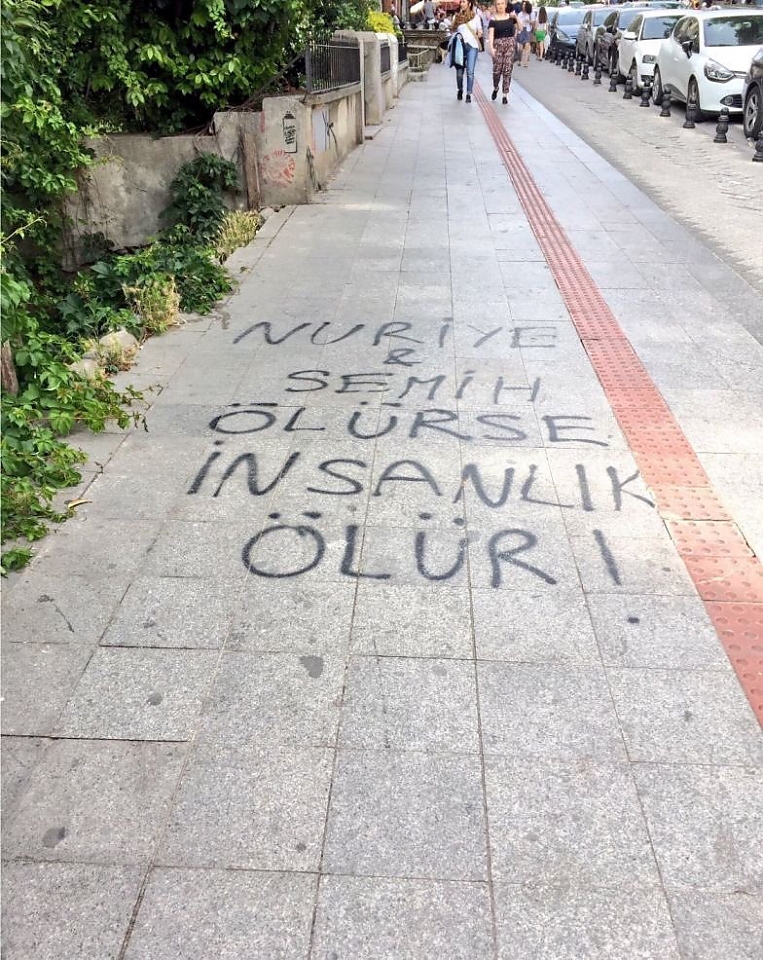 NURİYE
&
SEMİH
ÖLÜRSE
İNSANLIK
ÖLÜR!